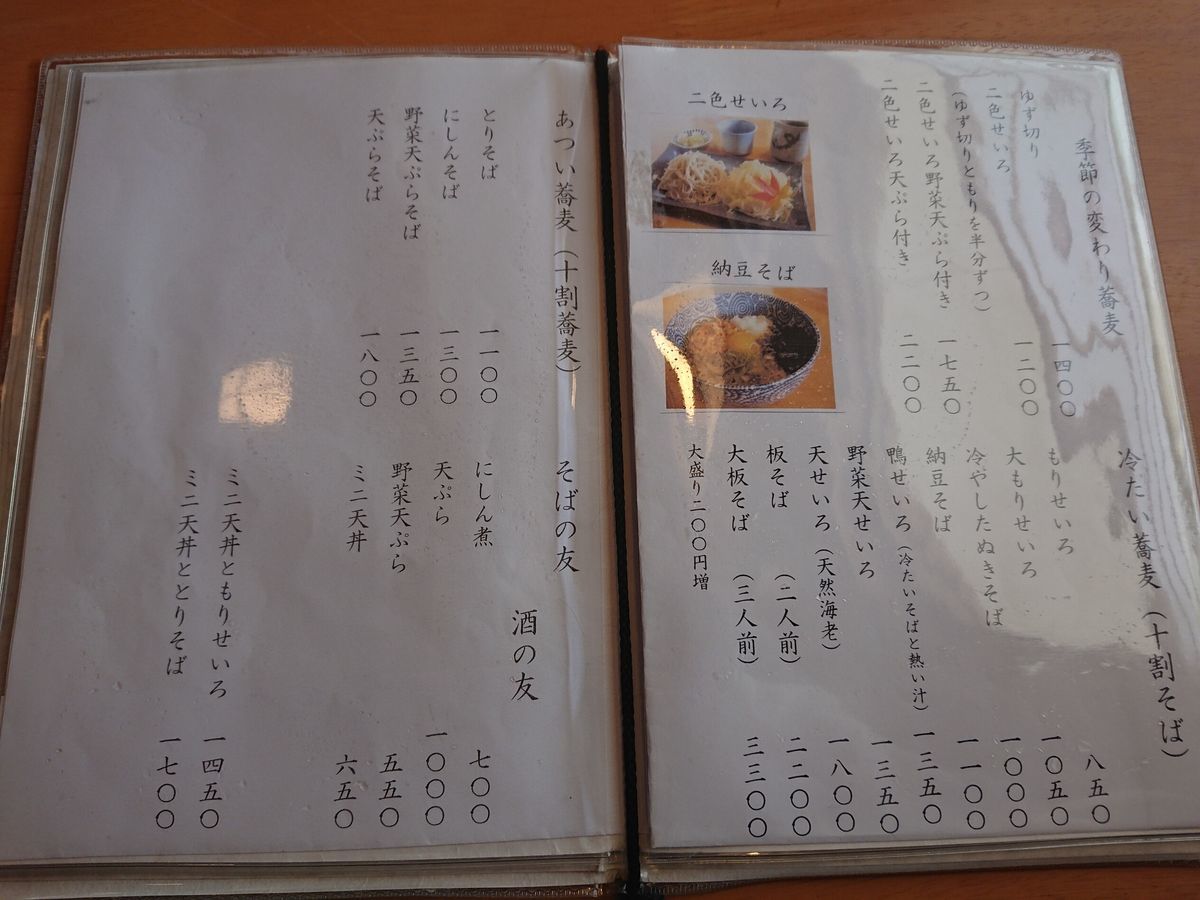 季節の変わり蕎麦
ゆず切り 一四〇〇
二色せいろ 一二〇〇
(ゆず切りともりを半分ずつ)
二色せいろ野菜天ぷら付き 一七五〇
二色せいろ天ぷら付き 二二〇〇
二色せいろ
納豆そば
冷たい蕎麦(十割そば)
もりせいろ 八五〇
大もりせいろ 一〇五〇
冷やしたぬきそば 一〇〇〇
納豆そば 一一〇〇
鴨せいろ(冷たいそばと熱い汁) 一三五〇
野菜天せいろ 一三五〇
天せいろ(天然海老) 一八〇〇
板そば (二人前) 二二〇〇
大板そば (三人前) 三三〇〇
大盛り二〇〇円増
あつい蕎麦(十割蕎麦)
とりそば 一一〇〇
にしんそば 一三〇〇
野菜天ぷらそば 一三五〇
天ぷらそば 一八〇〇
そばの友
酒の友
にしん煮 七〇〇
天ぷら 一〇〇〇
野菜天ぷら 五五〇
ミニ天丼 六五〇
ミニ天丼ともりせいろ 一四五〇
ミニ天丼ととりそば 一七〇〇